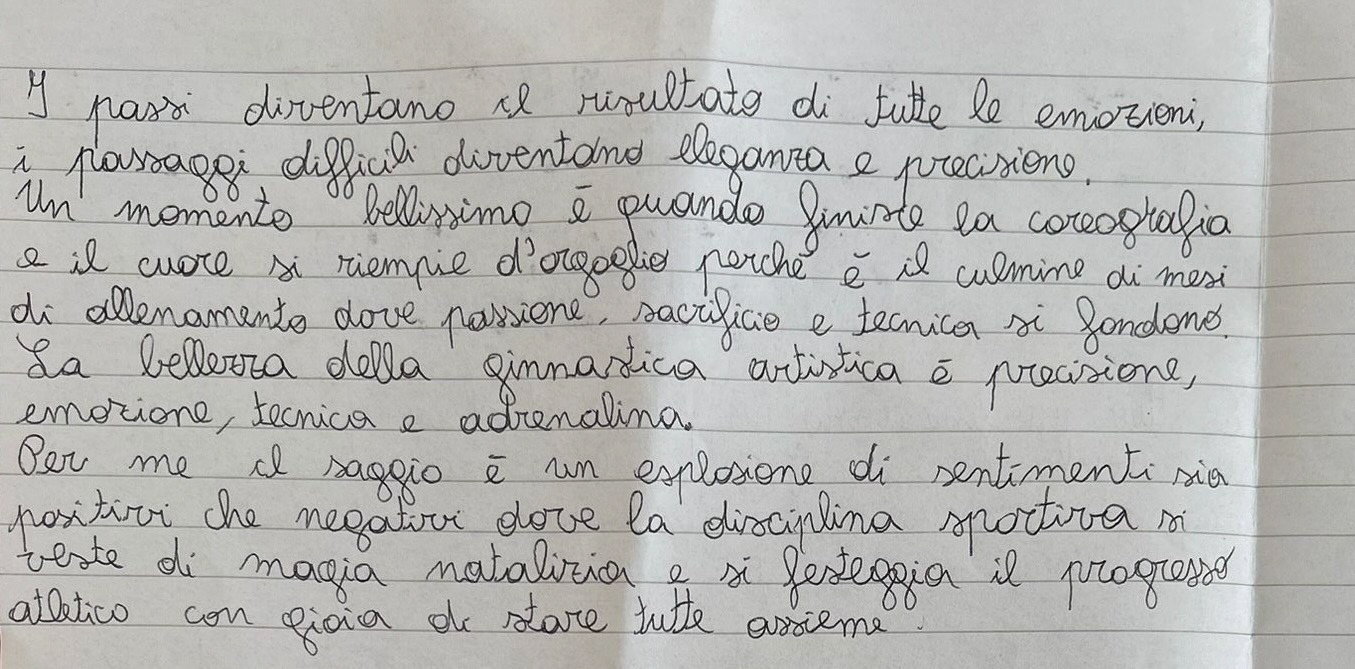 I passi diventano il risultato di tutte le emozioni,
i passaggi difficili diventano eleganza e precisione.
Un momento bellissimo è quando finisce la coreografia
e il cuore si riempie d'orgoglio perchè è il culmine di mesi
di allenamento dove passione, sacrificio e tecnica si fondono.
La bellezza della ginnastica artistica è precisione,
emozione, tecnica e adrenalina.
Per me il saggio è un esplosione di sentimenti sia
positivi che negativi dove la disciplina sportiva si
veste di magia natalizia e si festeggia il progresso
atletico con gioia di stare tutte assieme.